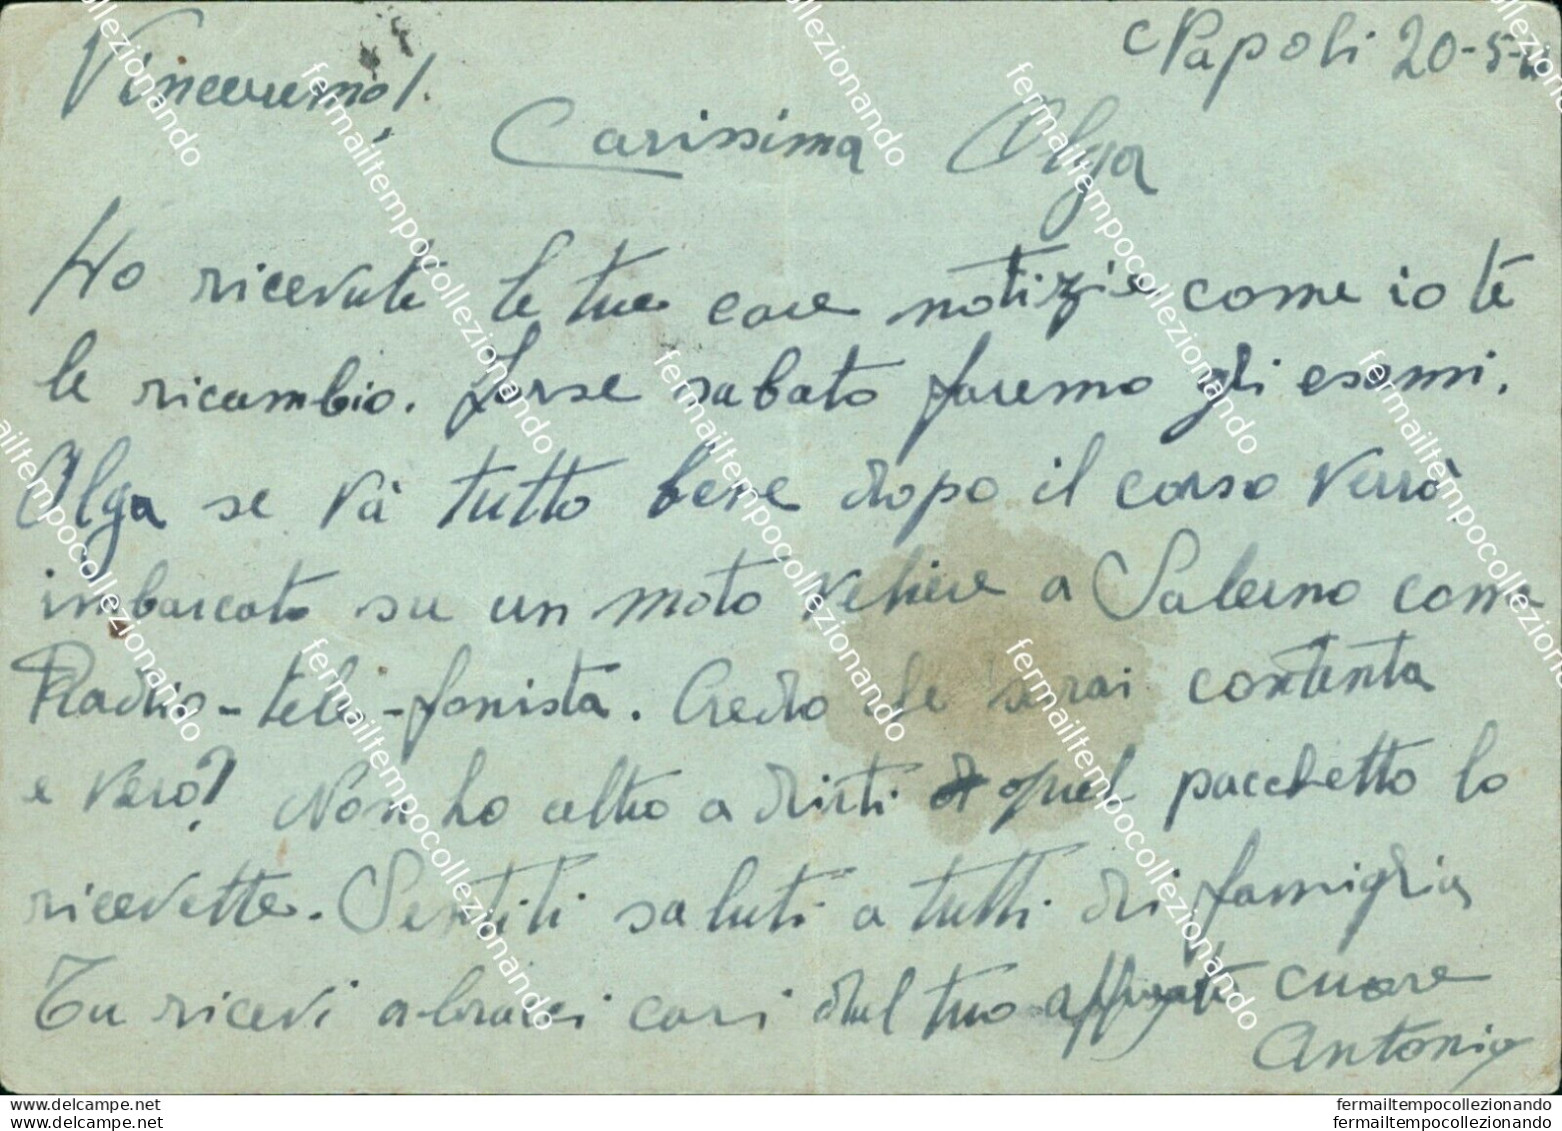 Napoli 20-5-
Vinceremo!
Carissima Olga
Ho ricevuti le tue care notizie come io te
le ricambio. forse sabato faremo gli esami.
Olga se và tutto bene dopo il corso verrò
imbarcato su un moto veliere a Salerno come
Radio-tele-fonista. Credo che sarai contenta
e vero? Non ho altro a dirti quel pacchetto lo
ricevette. Sentiti saluti a tutti di famiglia
Tu ricevi abracci cari dal tuo cuore
Antonio
www.delcampe.net
www.delcampe.net
fermailtempocollezionando
fermailtempocollezionando